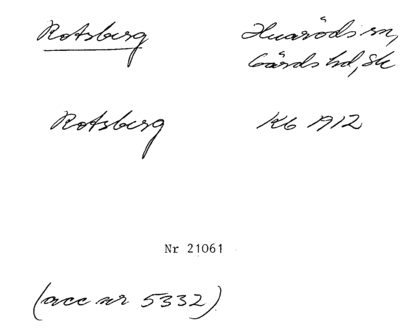 Rotsberg Huaröds sn,
Gärds hd, Sk
Rotsberg Kb 1912
Nr 21061
(acc nr 5332)